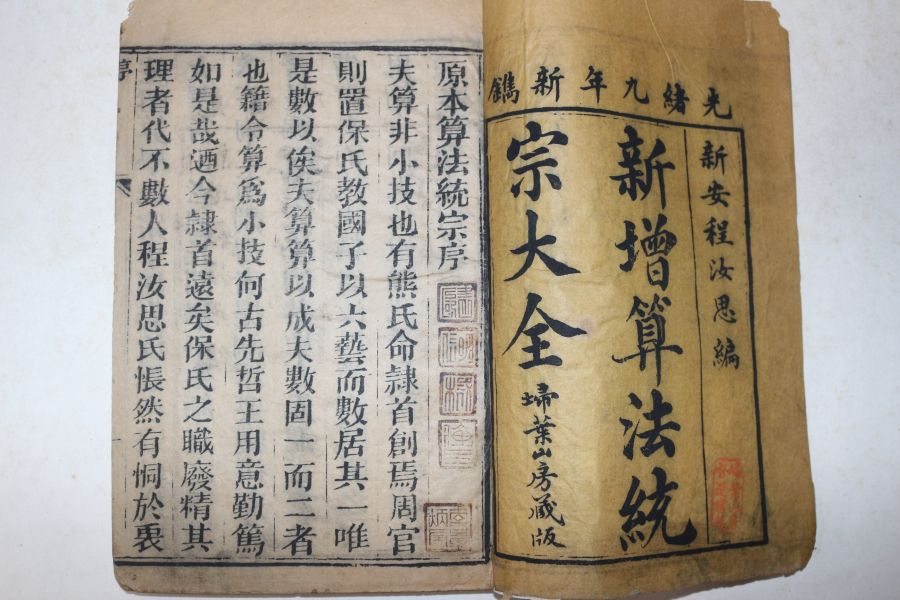 光緒九年新鐫
新安程汝思編
新增算法統
宗大全
埽葉山房藏版
原本算法統宗序
夫算非小技也有熊氏命隷首創焉周官
則置保氏教國子以六藝而數居其一唯
是數以俟夫算算以成夫數固一而二者
也籍令算爲小技何古先哲王用意勤篤
如是哉迺今隷首遠矣保氏之職廢精其
理者代不數人程汝思氏悵然有恫於衷
序